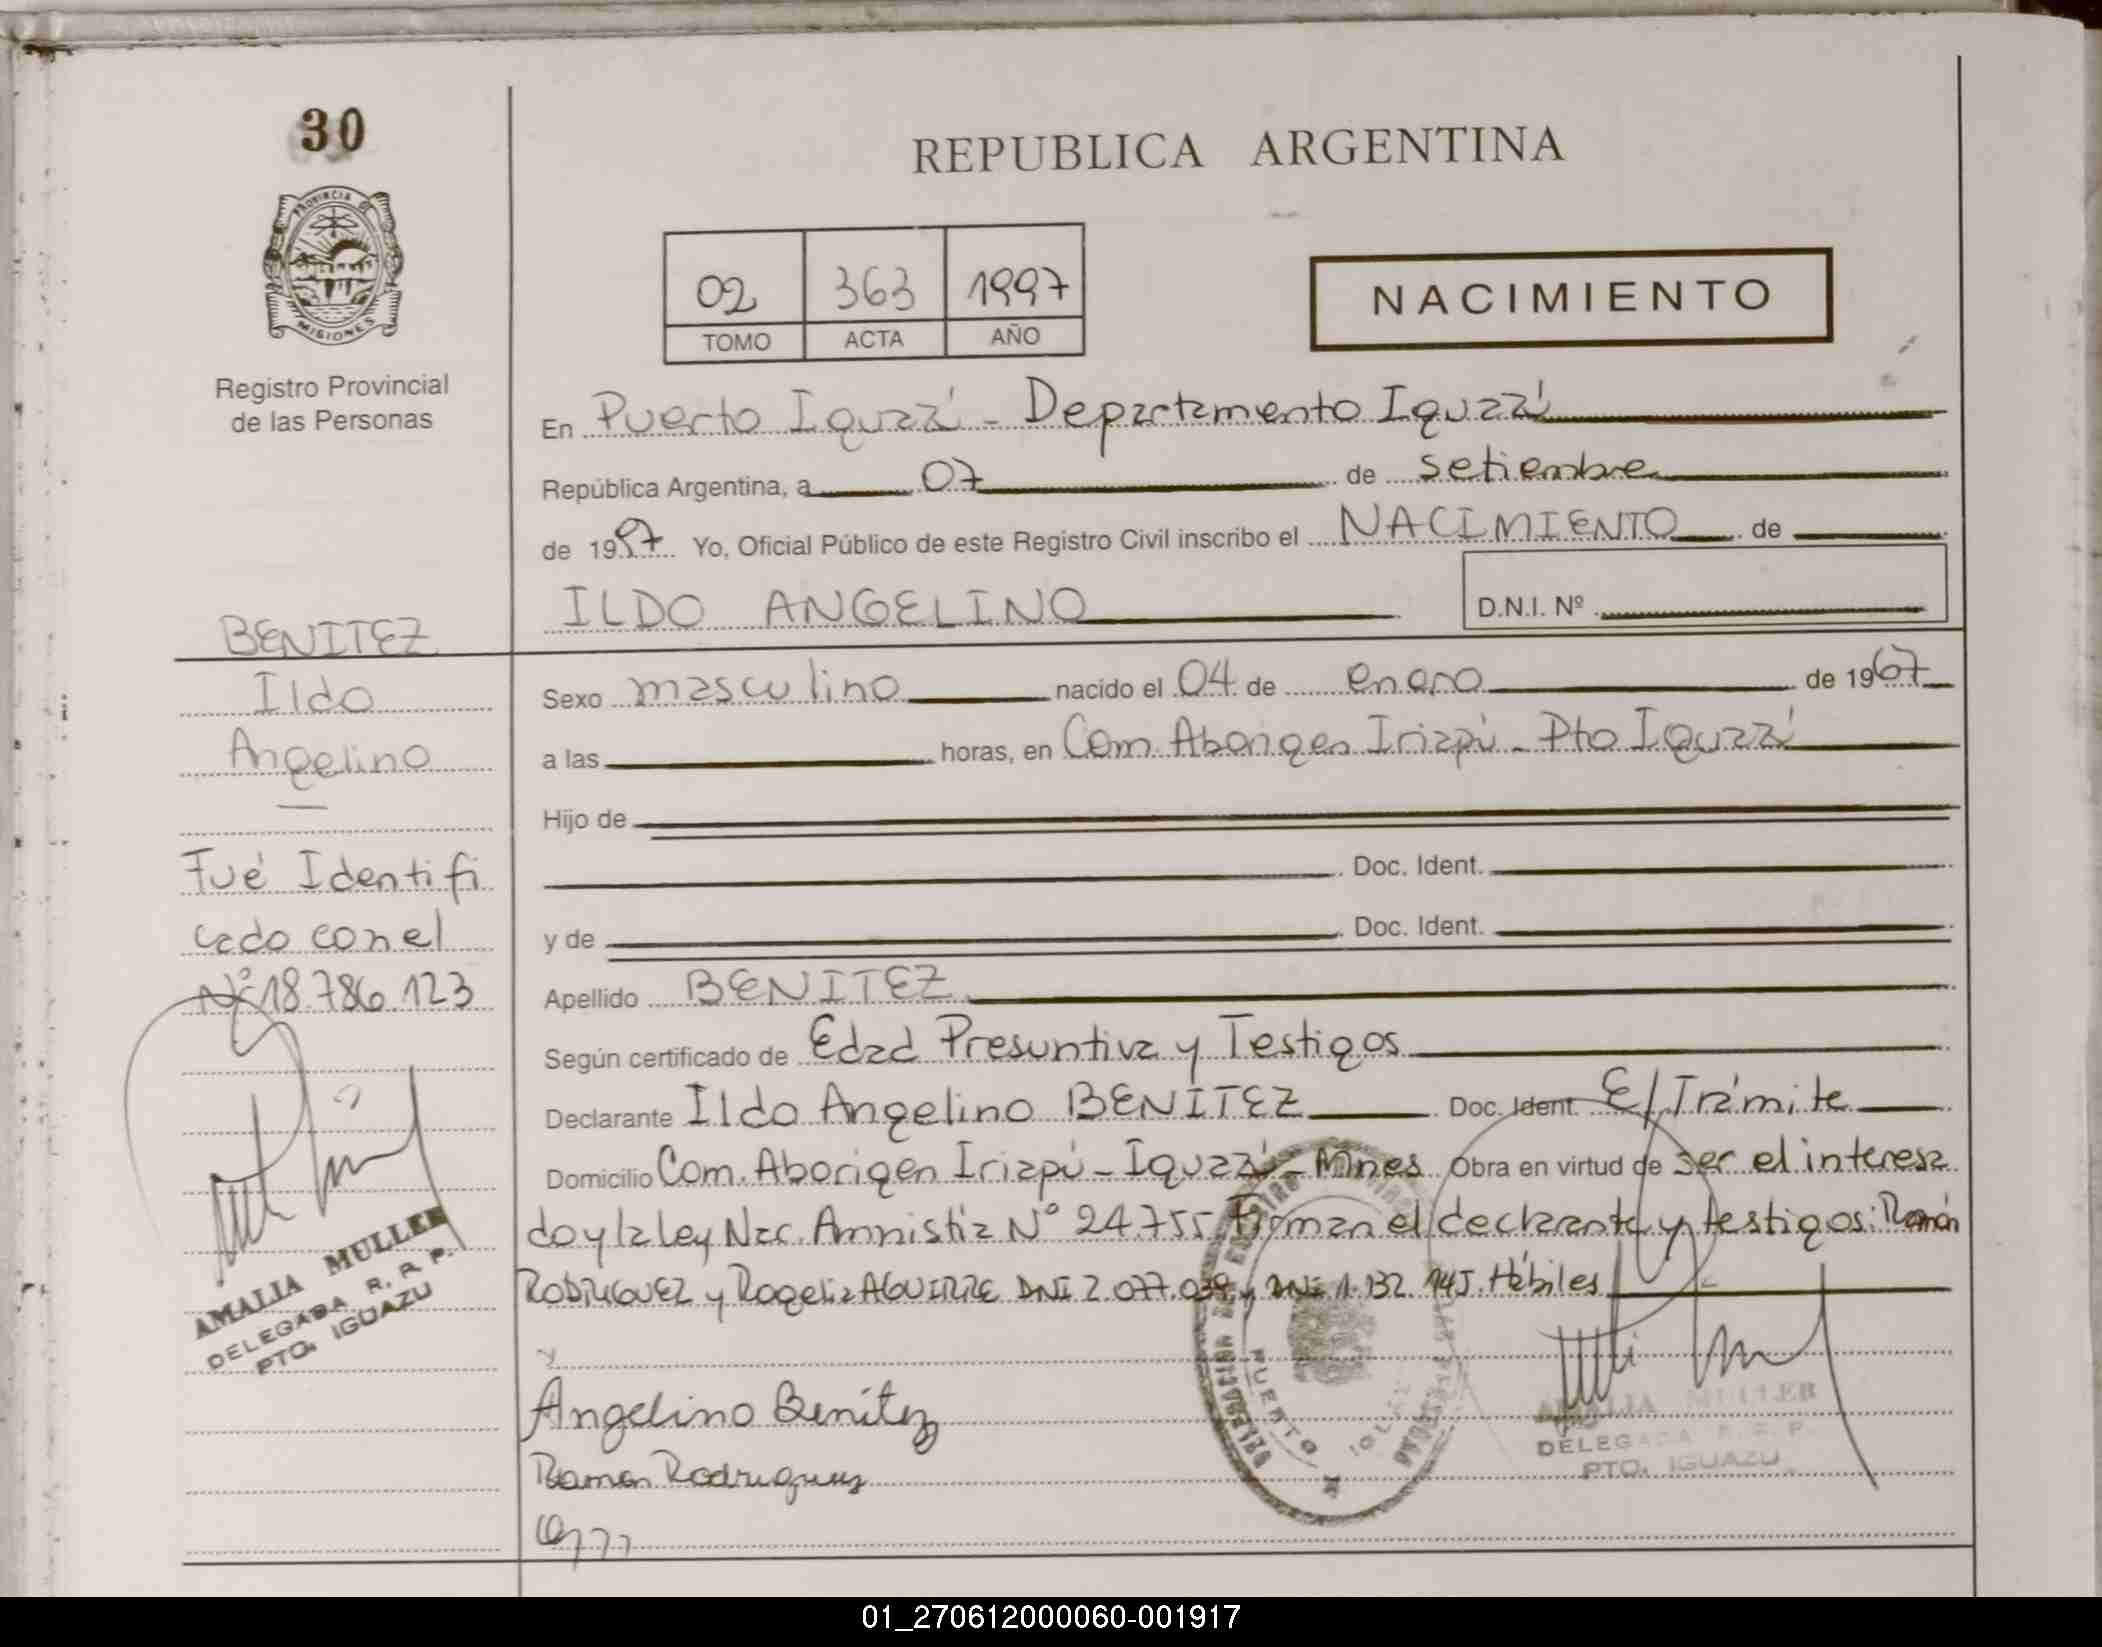 30
REPUBLICA ARGENTINA
PROVINCIA DE
MISIONES
Registro Provincial
de las Personas
02 363 1997
TOMO ACTA AÑO
NACIMIENTO
En Puerto Iguazú - Departamento Iguazú
República Argentina, a 07 de setiembre
de 1997 Yo, Oficial Público de este Registro Civil inscribo el NACIMIENTO de
ILDO ANGELINO D.N.I. Nº
BENITEZ
Ildo
Angelino
Fué Identifi
cado con el
Nº 18.786.123
AMALIA MULLER
DELEGADA R. R. P.
PTO. IGUAZU
Sexo masculino nacido el 04 de enero de 1967
a las horas, en Com. Aborigen Iriapú - Pto Iguazú
Hijo de
Doc. Ident.
y de Doc. Ident.
Apellido BENITEZ
Según certificado de Edad Presuntiva y Testigos
Declarante Ildo Angelino BENITEZ Doc. Ident. E/Trámite
Domicilio Com. Aborigen Iriapú - Iguazú - Mnes Obra en virtud de ser el interesa
do y la ley Nac. Amnistía Nº 24.755 Firman el declarante y testigos: Ramón
RODRIGUEZ y Rogelia AGUIRRE DNI 2.077.039 y DNI 1.132.145. Hábiles
y
Angelino Benítez
Ramon Rodriguez
PUERTO
AMALIA MULLER
DELEGADA R. R. P.
PTO. IGUAZU
01_270612000060-001917